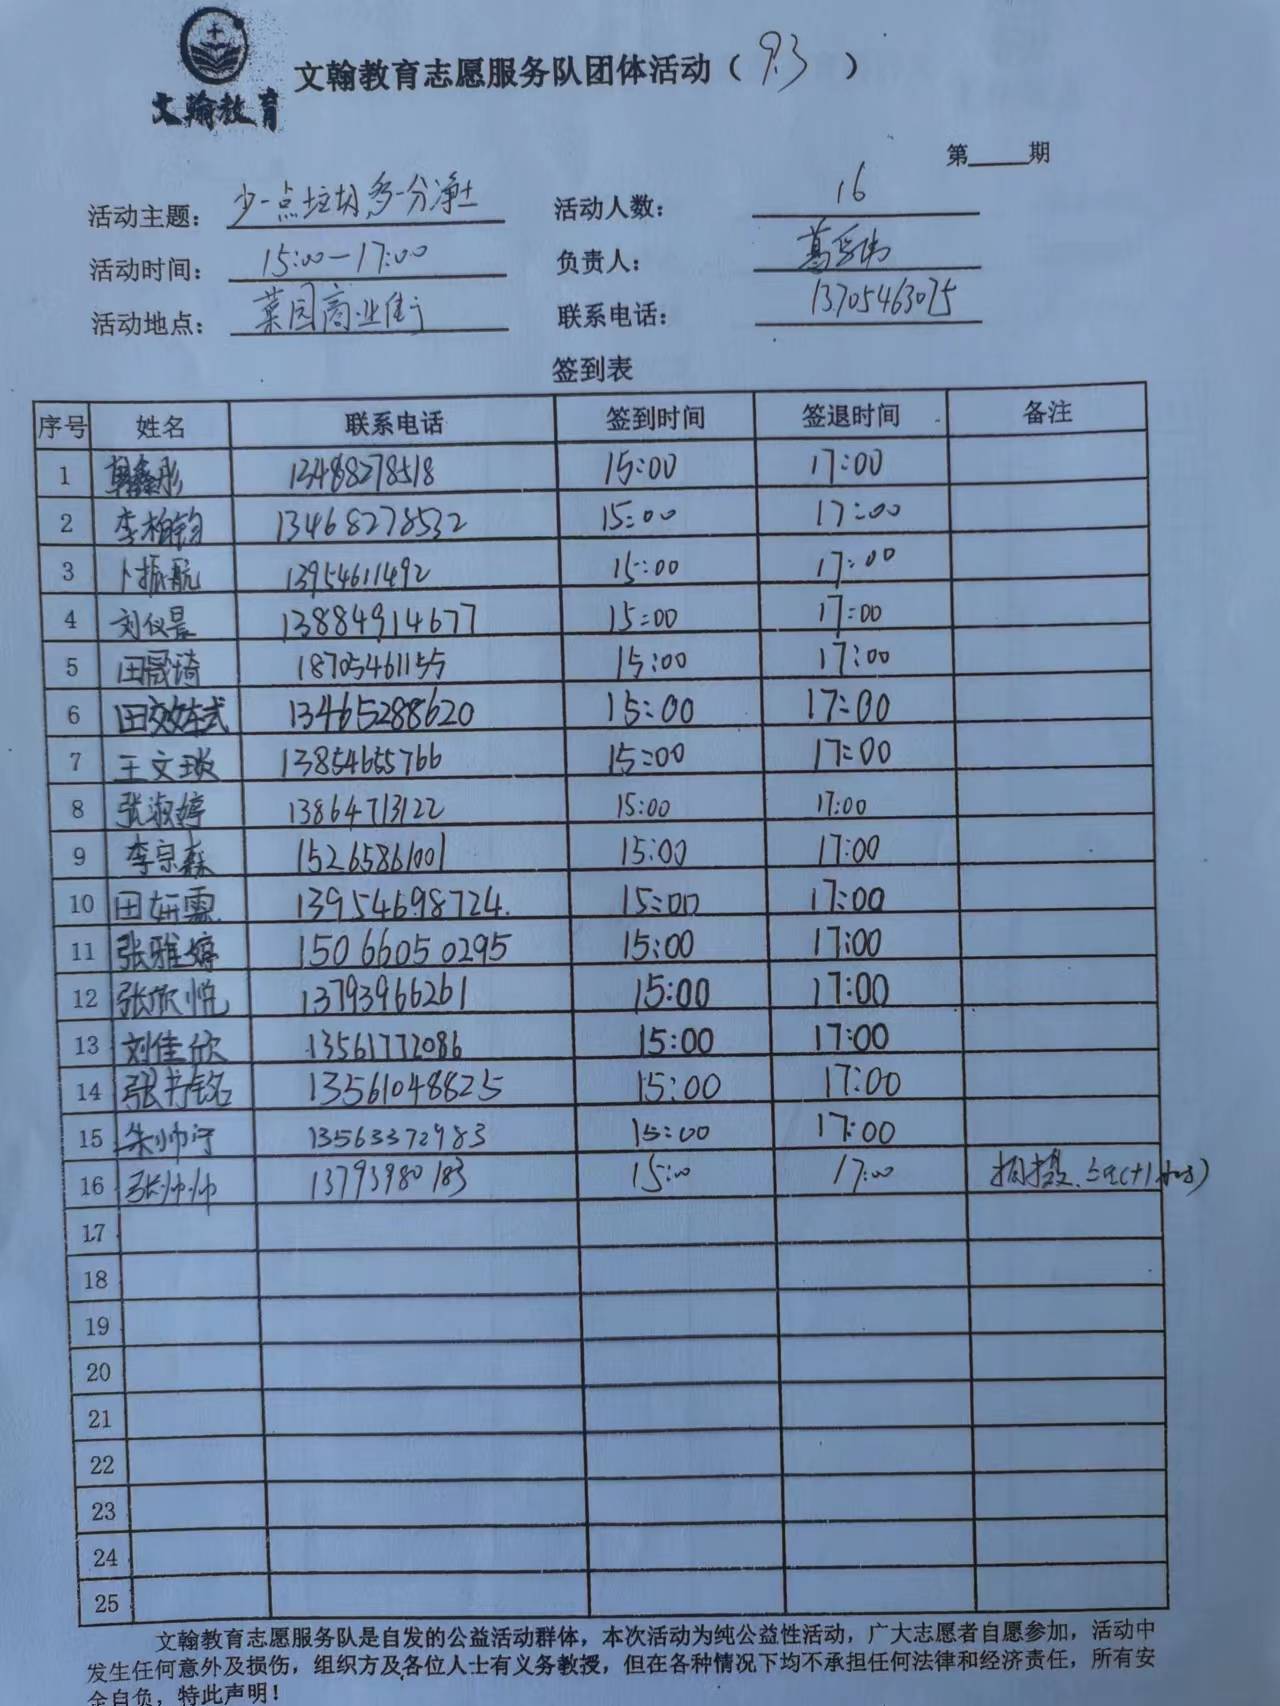 文翰教育
文翰教育志愿服务队团体活动（9.3）
第____期
活动主题：少一点垃圾多一分净土 活动人数：16
活动时间：15:00—17:00 负责人：葛
活动地点：菜园商业街 联系电话：13705463075
签到表
序号 姓名 联系电话 签到时间 签退时间 备注
1 韩鑫彤 13468278518 15:00 17:00
2 李柏钧 13468278532 15:00 17:00
3 卜振航 13954611492 15:00 17:00
4 刘仪晨 13884914677 15:00 17:00
5 田晟琦 18705461155 15:00 17:00
6 田 13465288620 15:00 17:00
7 王文璇 13854655766 15:00 17:00
8 张淑婷 13864713122 15:00 17:00
9 李宗森 15265861001 15:00 17:00
10 田妍霏 13954698724. 15:00 17:00
11 张雅婷 15066050295 15:00 17:00
12 张欣悦 13793966261 15:00 17:00
13 刘佳欣 13561772086 15:00 17:00
14 张书铭 13561048825 15:00 17:00
15 朱帅宁 13563372983 15:00 17:00
16 张帅帅 13793980183 15:00 17:00 拍摄
17
18
19
20
21
22
23
24
25
文翰教育志愿服务队是自发的公益活动群体，本次活动为纯公益性活动，广大志愿者自愿参加，活动中
发生任何意外及损伤，组织方及各位人士有义务教授，但在各种情况下均不承担任何法律和经济责任，所有安
全自负，特此声明！